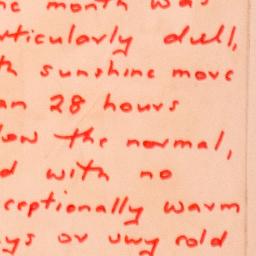 he month was
rticularly dull,
th sunshine more
an 28 hours
low the normal,
d with no
ceptionally warm
ys or very cold